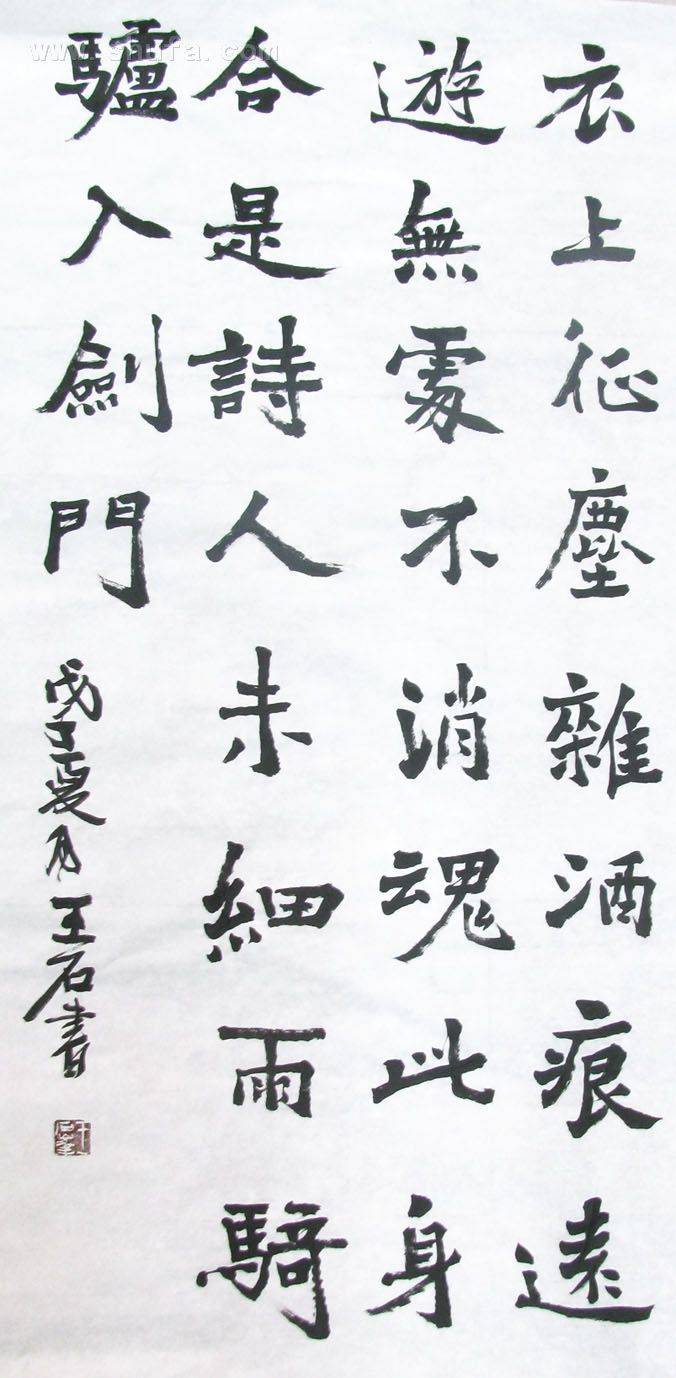 衣上征塵雜酒痕遠
遊無處不消魂此身
合是詩人未細雨騎
驢入劍門
戊子夏月王石書
www.shufa.com